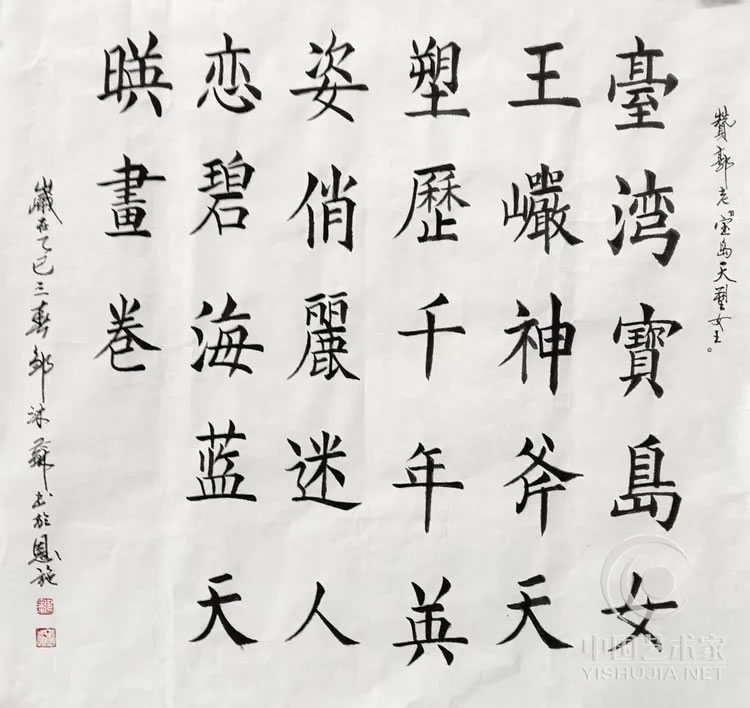 赞郭老“宝岛天塑女王。
臺灣寶島女
王巗神斧天
塑歷千年英
姿俏麗迷人
恋碧海蓝天
暎畫卷
歲在乙巳三春鄒沐蘇书於恩施
中国艺术家
YISHUJIA.NET